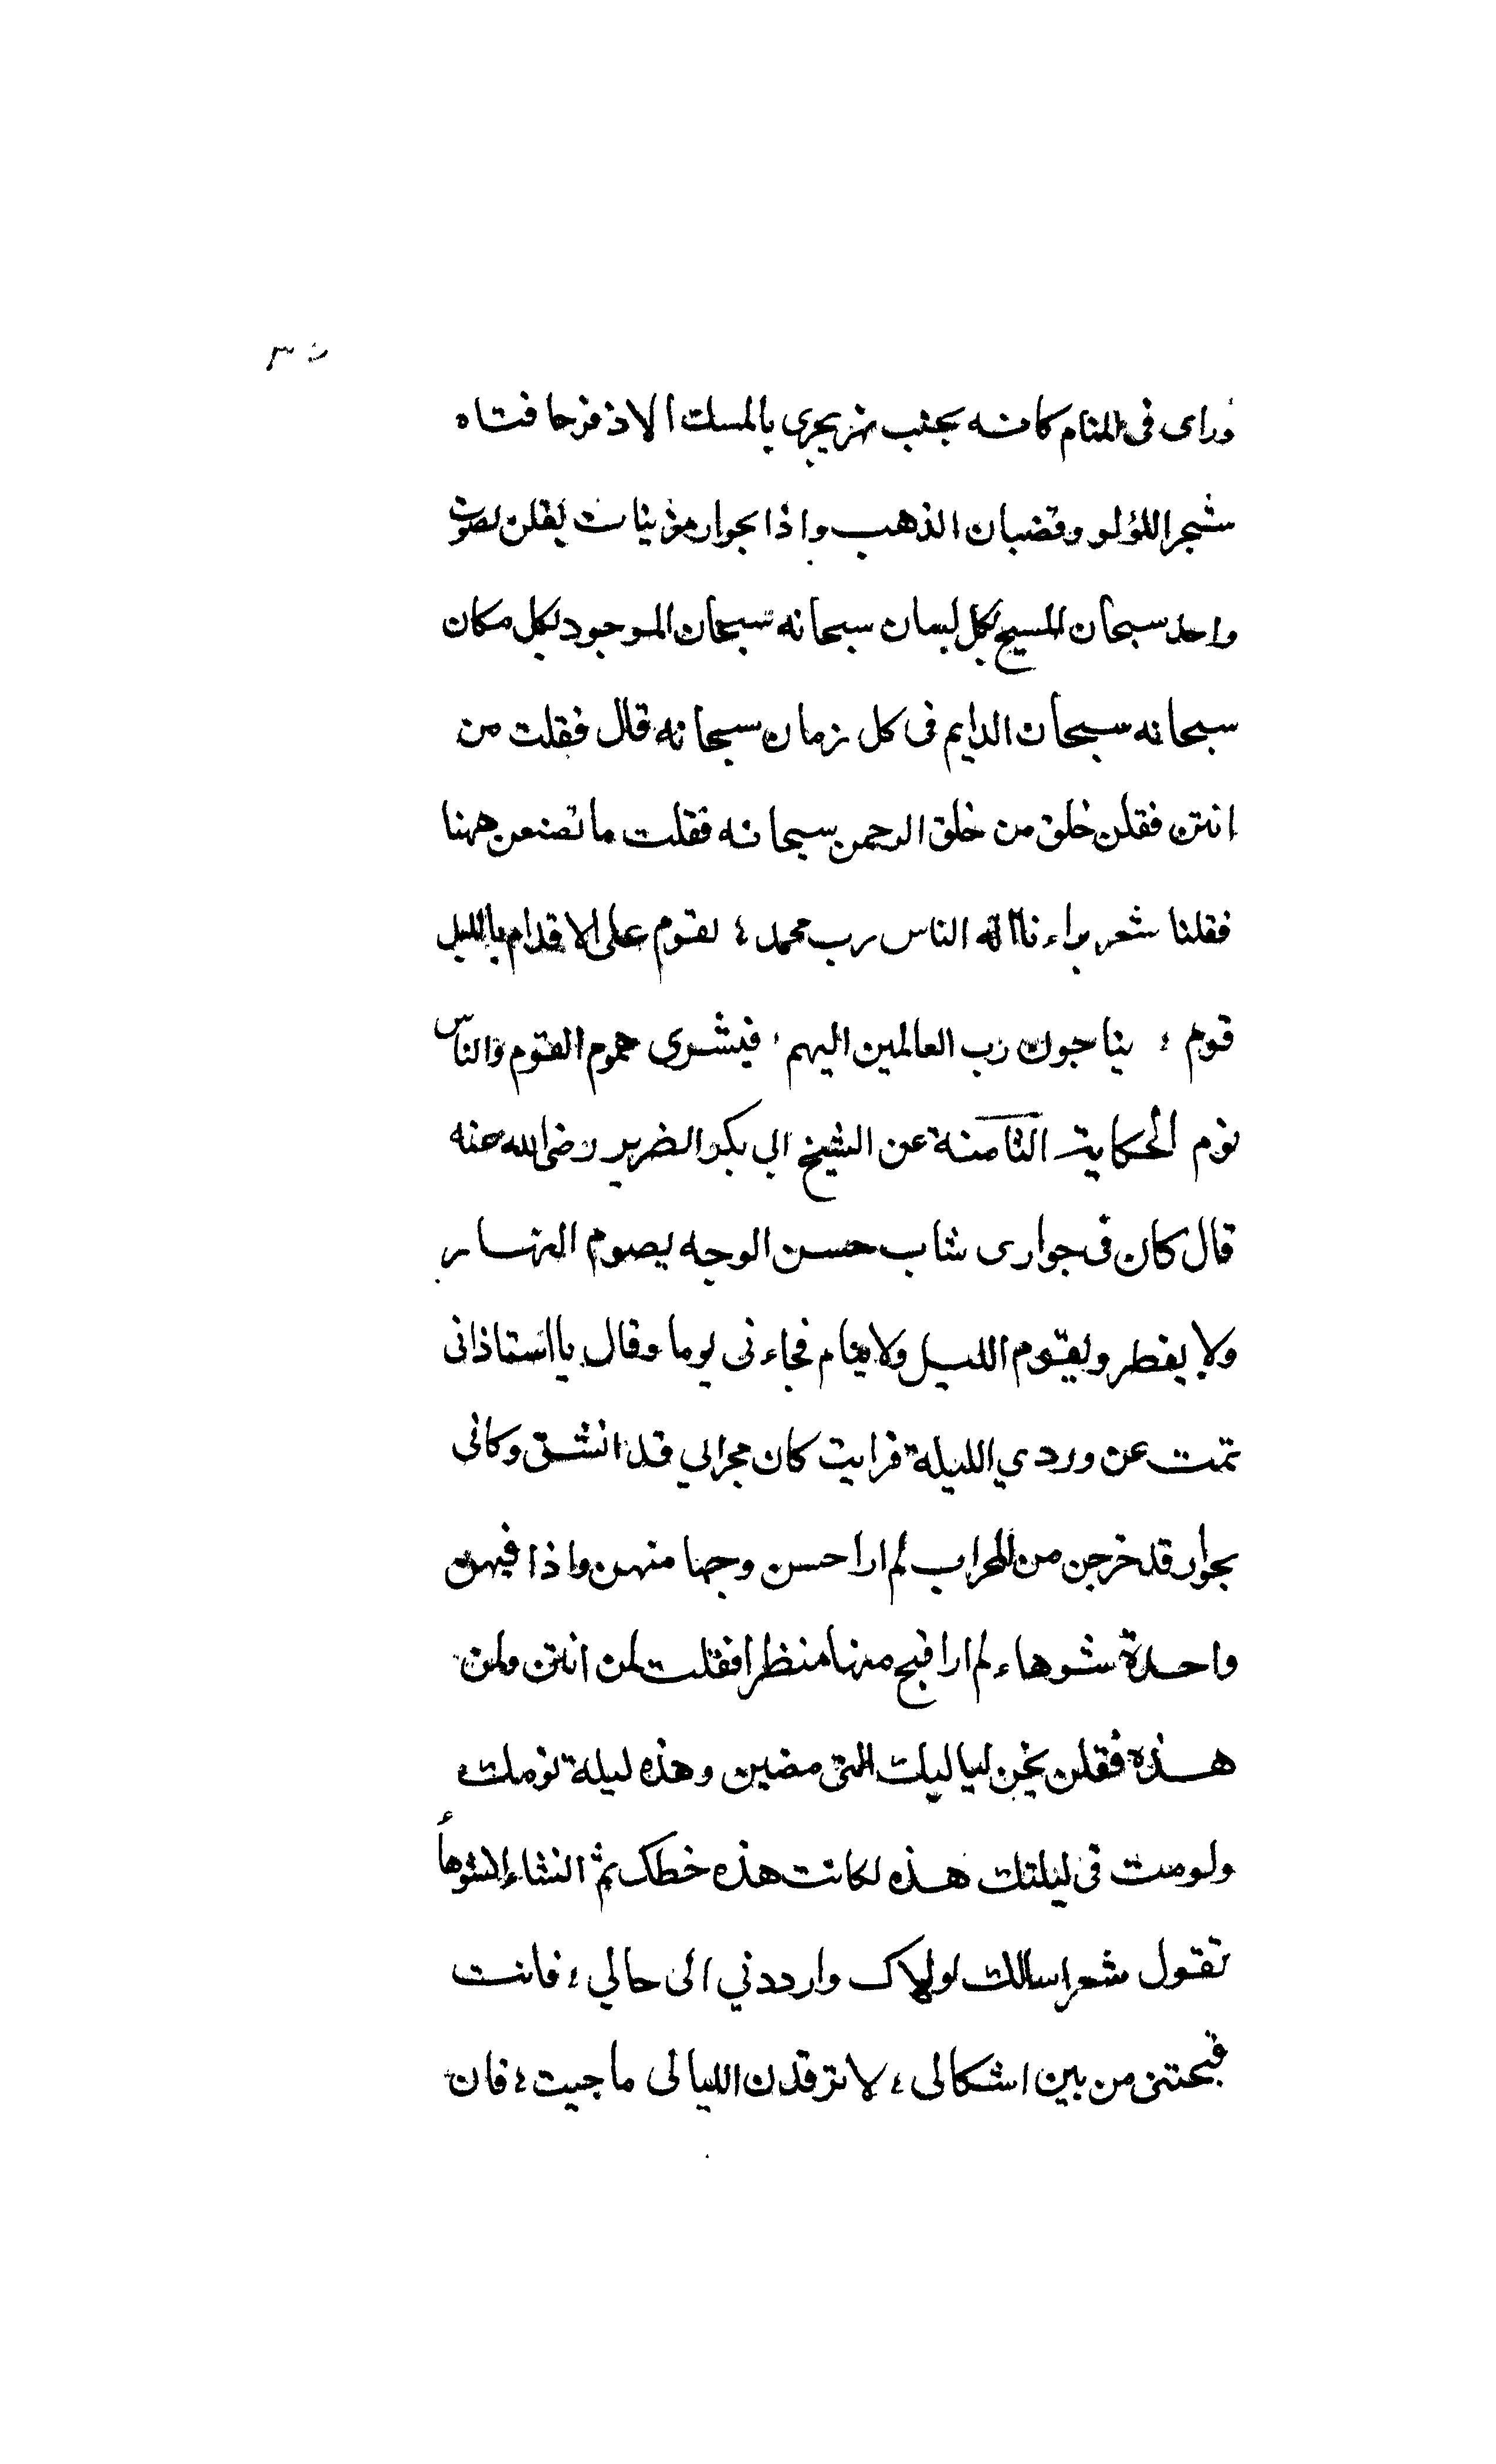 وراى فى المنام كانه بجنب نهر يجرى بالمسك الاذفر حافتاه
شجر اللؤلو وقضبان الذهب واذا بجوار مزينات يقلن بصوت
واحد سبحان المسبح بكل لسان سبحانه سبحان الموجود بكل مكان
سبحانه سبحان الدايم فى كل زمان سبحانه قال فقلت من
انتن فقلن خلق من خلق الرحمن سبحانه فقلت ما تصنعن ههنا
فقلنا شعر براءنا اله الناس رب محمد ، لقوم على الاقدام بالليل
قوم ، يناجون رب العالمين اليهم ، فيشرى هموم القوم والناس
نوم الحكاية الثامنة عن الشيخ ابي بكر الضرير رضى الله عنه
قال كان فى جوارى شاب حسن الوجه يصوم النهار
ولا يفطر ويقوم الليل ولا ينام فجاءنى يوما وقال يا استاذ انى
نمت عن وردي الليلة فرايت كان محرابي قد انشق وكانى
بجوار قد خرجن من المحراب لم ار احسن وجها منهن واذا فيهن
واحدة شوهاء لم ار اقبح منها منظرا فقلت لمن انتن ولمن
هذه فقلن نحن لياليك التى مضين وهذه ليلة نومك
ولو مت فى ليلتك هذه لكانت هذه حظك ثم انشاء الشوهاء
تقول شعر اسالك لمولاك وارددني الى حالي ، فانت
قبحتنى من بين اشكالى ، لا ترقدن الليالى ما حييت ، فان